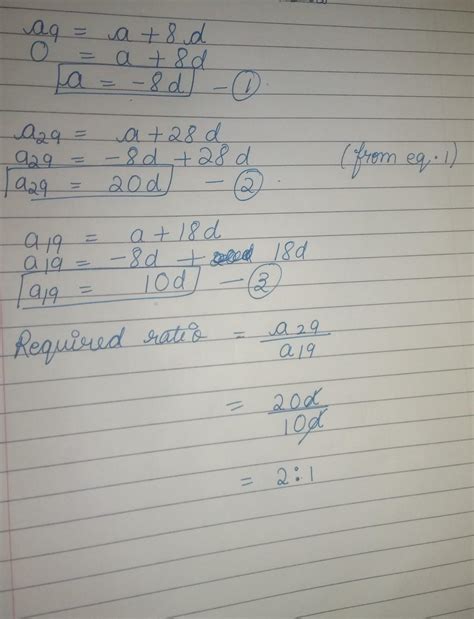 a₉ = a + 8d
0 = a + 8d
a = -8d — ①
a₂₉ = a + 28d
a₂₉ = -8d + 28d (from eq. 1)
a₂₉ = 20d — ②
a₁₉ = a + 18d
a₁₉ = -8d + 18d
a₁₉ = 10d — ③
Required ratio = a₂₉/a₁₉
= 20d/10d
= 2:1